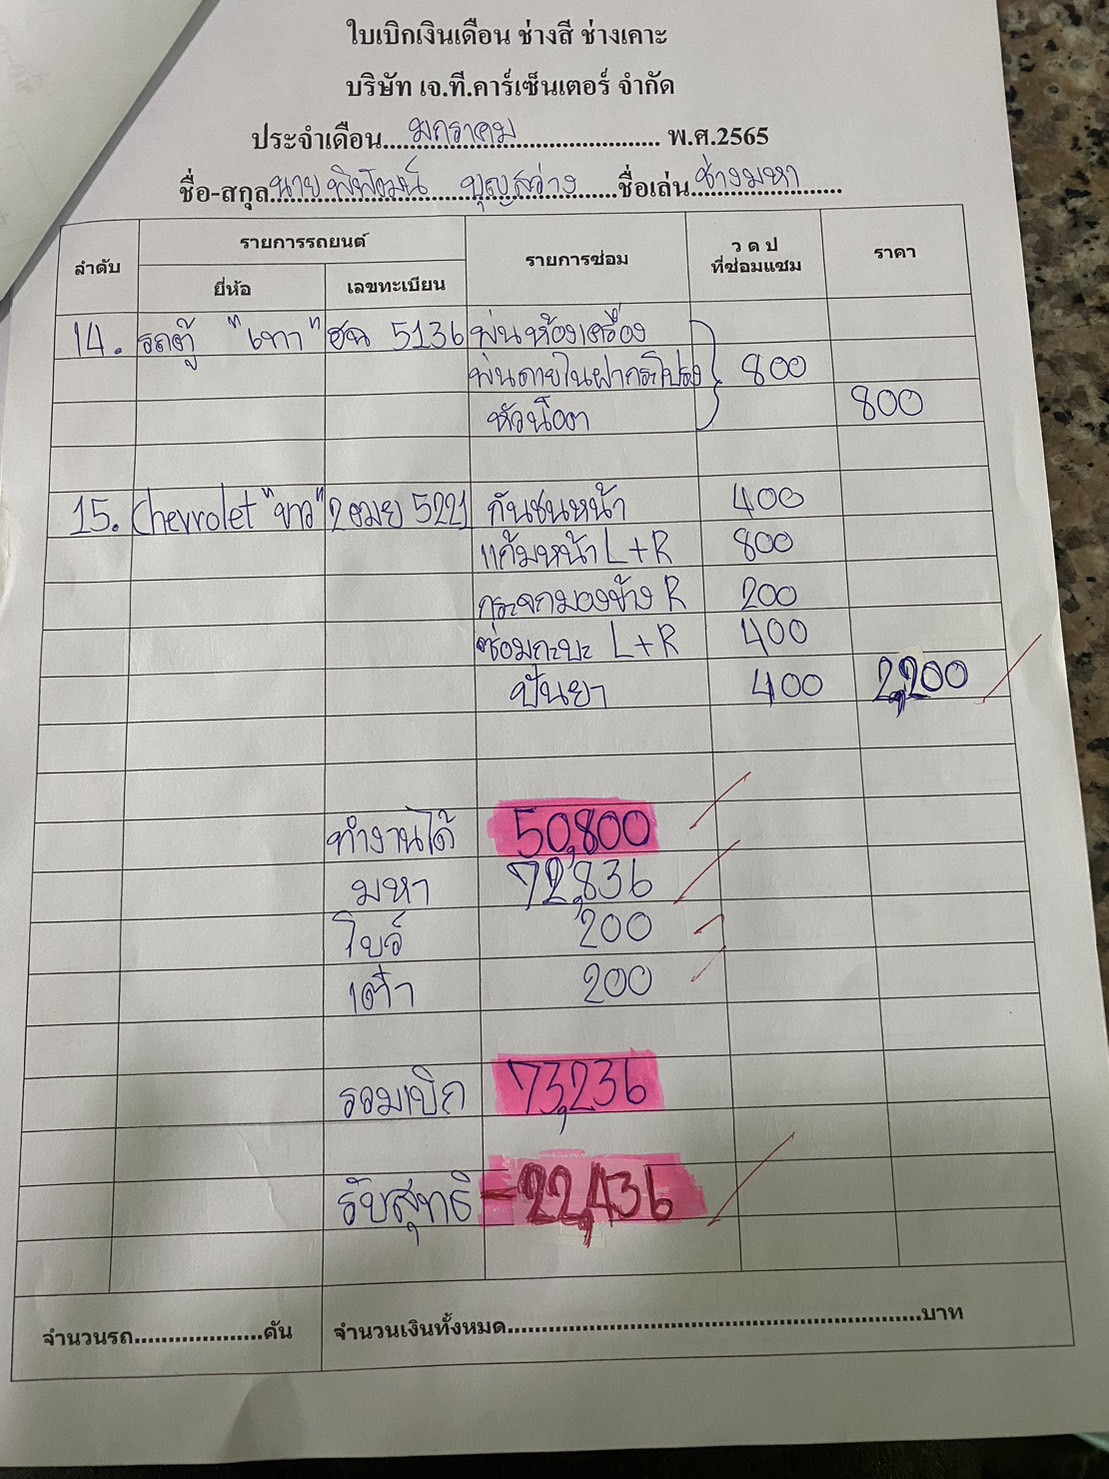 ใบเบิกเงินเดือน ช่างสี ช่างเคาะ
บริษัท เจ.ที.คาร์เซ็นเตอร์ จำกัด
ประจำเดือน มกราคม พ.ศ.2565
ชื่อ-สกุล นายพิพัฒน์ บุญสว่าง ชื่อเล่น ช่างมหา
ลำดับ รายการรถยนต์ รายการซ่อม ว ด ป ที่ซ่อมแซม ราคา
ยี่ห้อ เลขทะเบียน
14. รถตู้ "เทา" ฮฉ 5136 พ่นห้องเครื่อง
พ่นภายในฝากระโปรง 800
หัวน็อต 800
15. Chevrolet "ขาว" 2 ฒย 5221 กันชนหน้า 400
แก้มหน้า L+R 800
กระจกมองข้าง R 200
ซ่อมกะบะ L+R 400
ปั่นยา 400 2,200
ทำงานได้ 50,800
มหา 72,836
โบว์ 200
เต๋า 200
รวมเบิก 73,236
รับสุทธิ -22,436
จำนวนรถ....................คัน จำนวนเงินทั้งหมด....................บาท